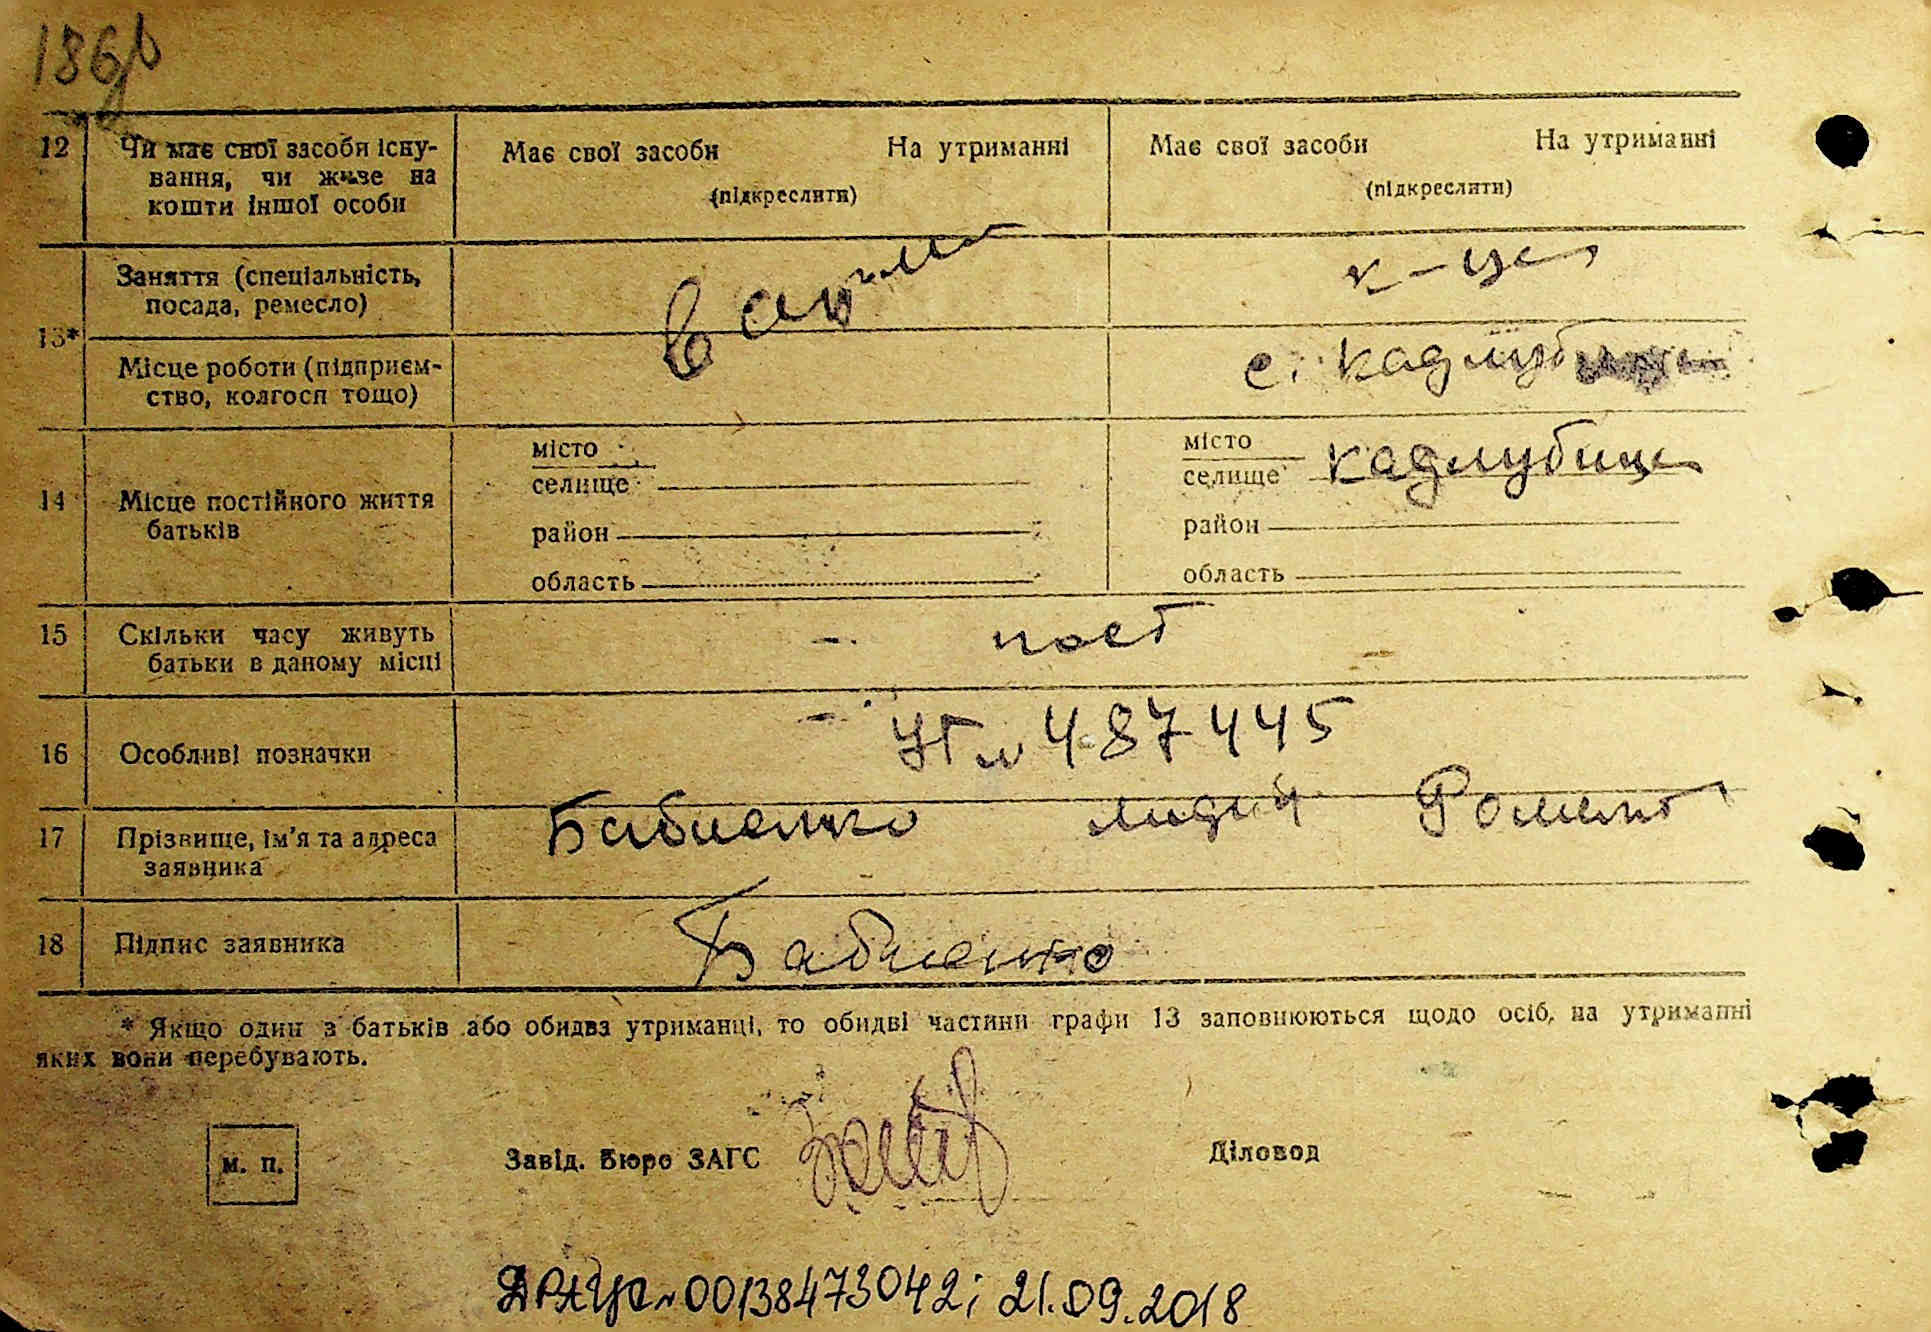 12 Чи має свої засоби існу-
вання, чи живе на
кошти іншої особи
Має свої засоби На утриманні
(підкреслити)
Має свої засоби На утриманні
(підкреслити)
13*
Заняття (спеціальність,
посада, ремесло)
в армії
к-ця
Місце роботи (підприєм-
ство, колгосп тощо)
с. Кадлубиця
14 Місце постійного життя
батьків
місто
селище
район
область
місто
селище Кадлубиця
район
область
15 Скільки часу живуть
батьки в даному місці
- пост
16 Особливі позначки
- № 487445
17 Прізвище, ім'я та адреса
заявника
Бабиенко
18 Підпис заявника
Бабиенко
* Якщо один з батьків або обидва утриманці, то обидві частини графи 13 заповнюються щодо осіб, на утриманні
яких вони перебувають.
М. П.
Завід. Бюро ЗАГС
Діловод
ДРАЦС № 00138473042; 21.09.2018